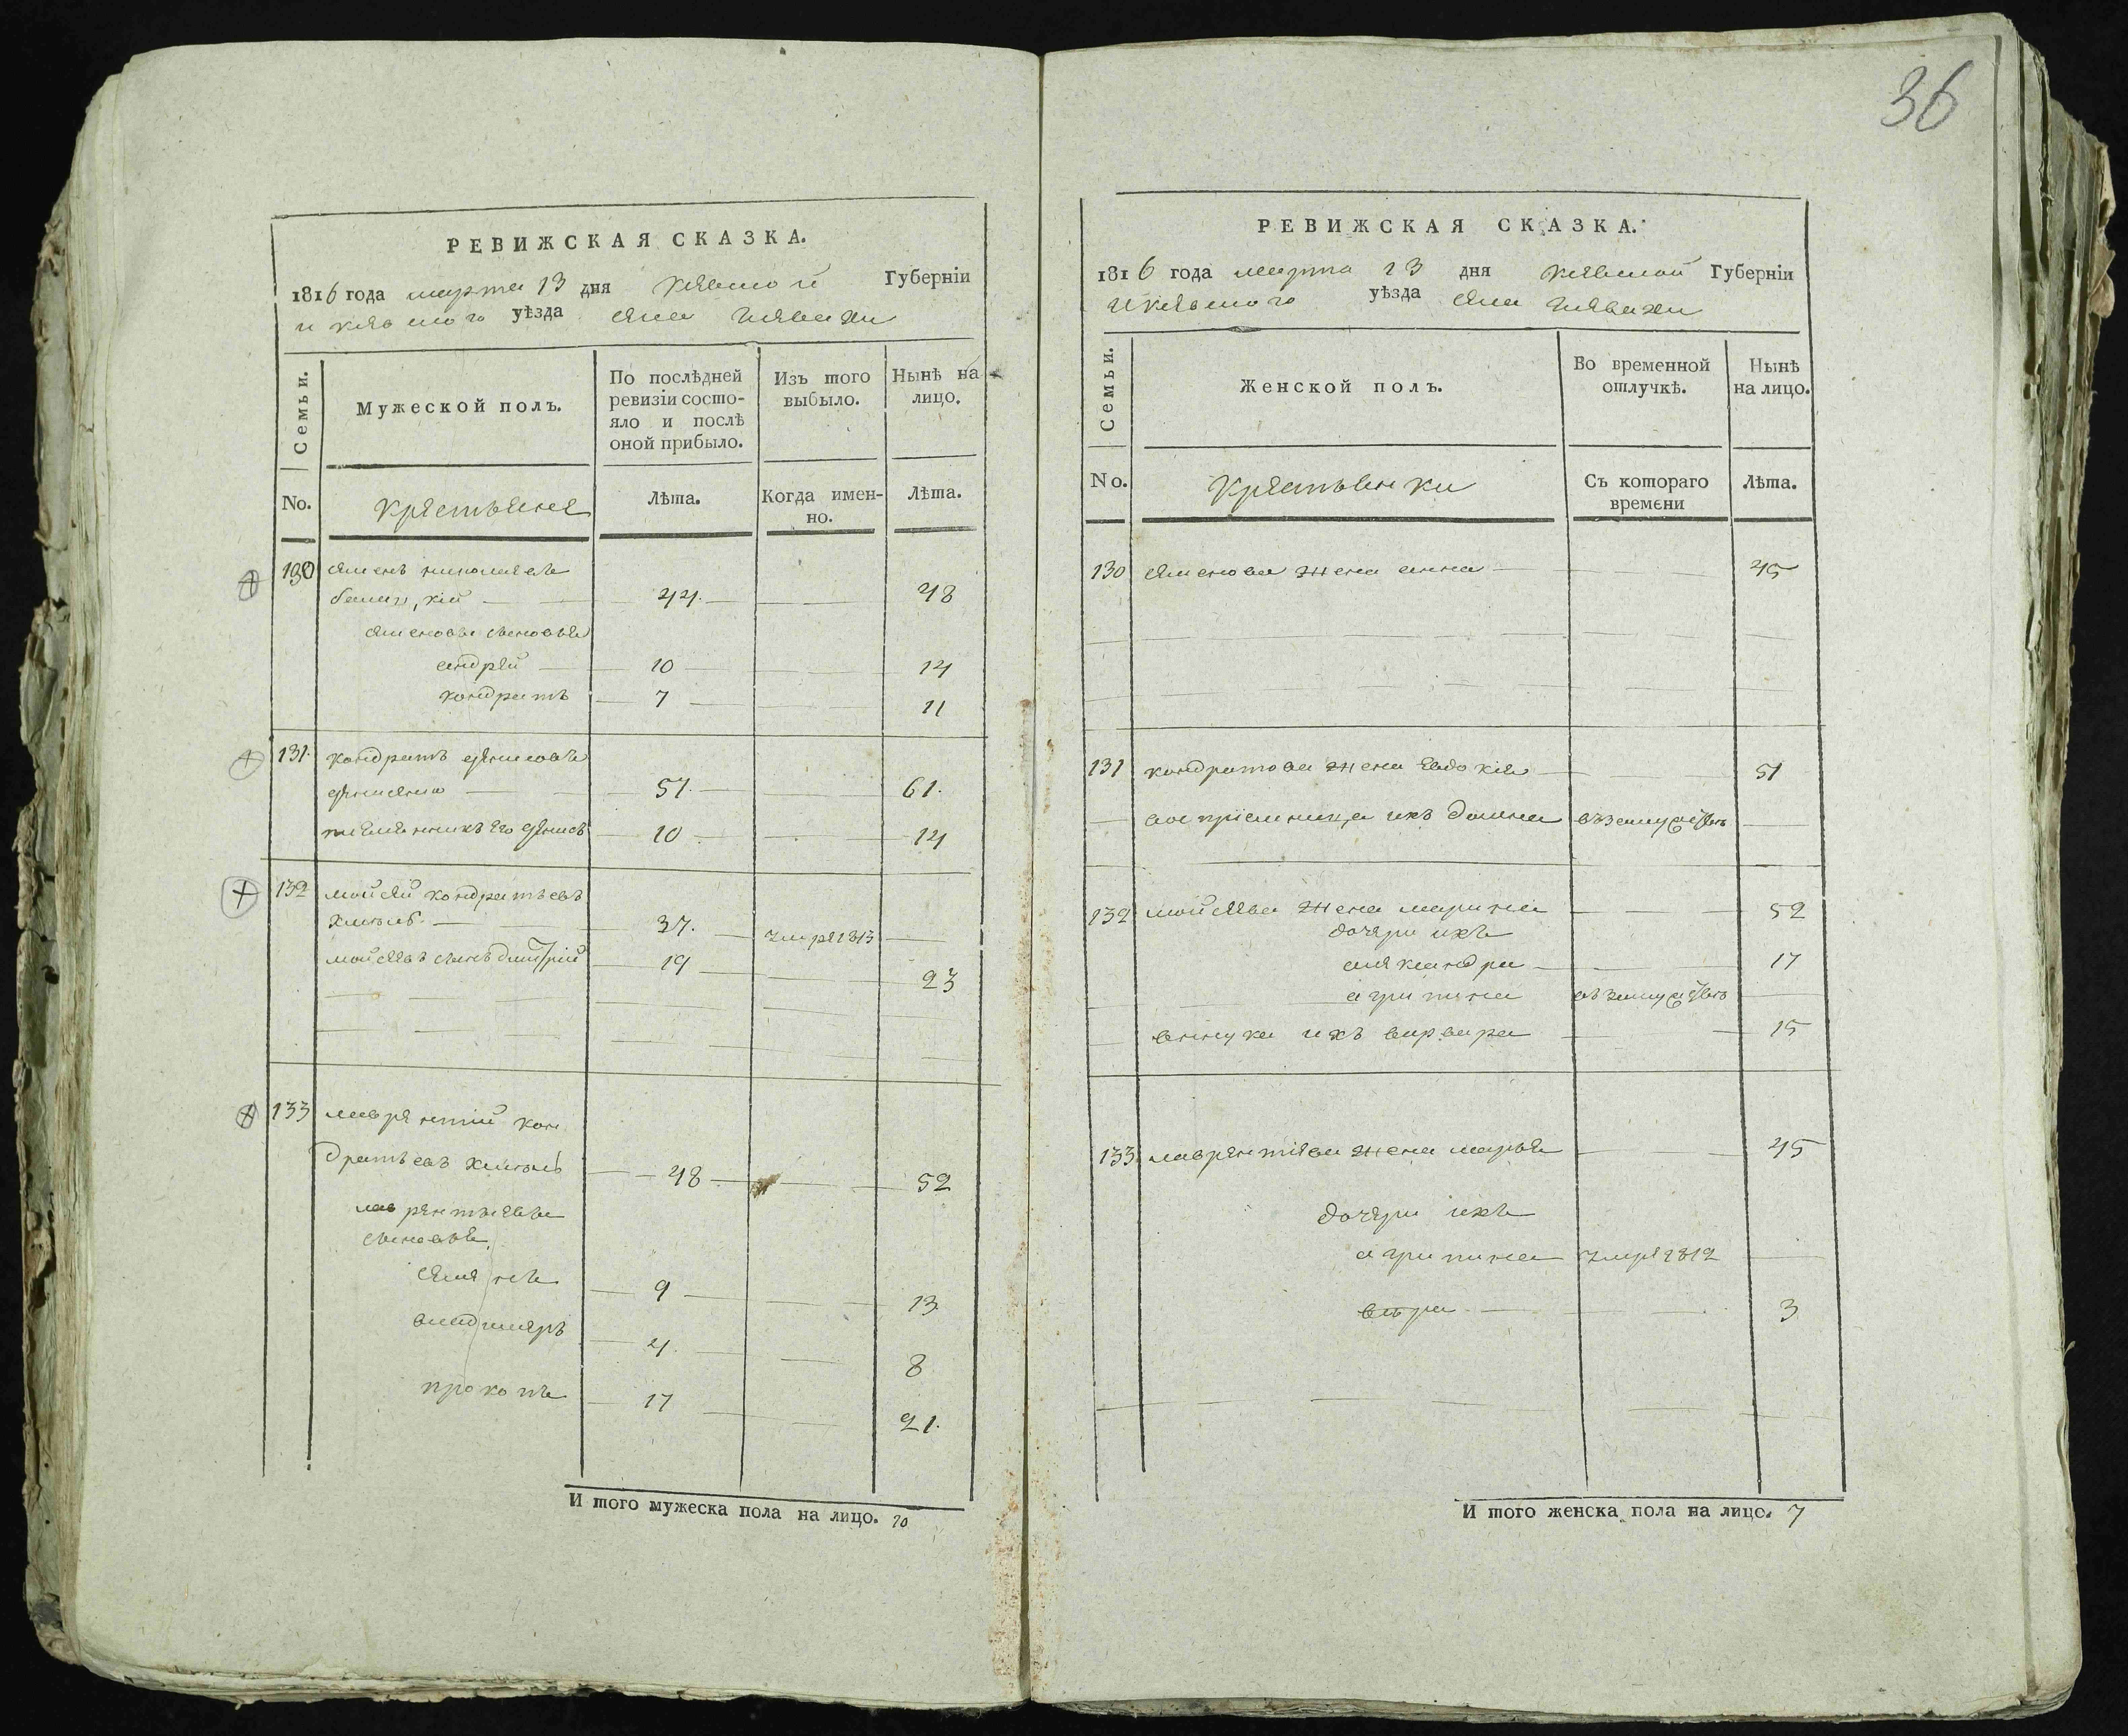 36
РЕВИЖСКАЯ СКАЗКА.
1816 года марта 13 дня Киевской Губерніи
и киевского уѣзда села
Семьи.
Мужеской полъ.
По послѣдней ревизіи состояло и послѣ оной прибыло.
Изъ того выбыло.
Нынѣ на лицо.
No.
крестьяне
Лѣта.
Когда именно.
Лѣта.
130 семенъ николаевъ
44. 48
семеновы сыновья
андрей 10 14
кондратъ 7 11
131. кондратъ денисовъ
57. 61.
племянникъ его денисъ 10 14
132 мойсей кондратьевъ
37. умре 1813
мойсеевъ сынъ дмитрій 19 23
133 лаврентий кон
дратьевъ 48 52
лаврентьевы
сыновья
семенъ 9 13
владимеръ 4. 8
прокопъ 17 21.
И того мужеска пола на лицо. 10
РЕВИЖСКАЯ СКАЗКА.
1816 года марта 13 дня Киевской Губерніи
и киевского уѣзда села
Семьи.
Женской полъ.
Во временной отлучкѣ.
Нынѣ на лицо.
No.
крестьянки
Съ котораго времени
Лѣта.
130 семенова жена анна 45
131 кондратова жена евдокія 51
воспріемница ихъ домна въ замужествѣ
132 мойсеева жена марина 52
дочери ихъ
александра 17
агрипина въ замужествѣ
внука ихъ варвара 15
133 лаврентіева жена марья 45
дочери ихъ
агрипина умре 1812
вѣра 3
И того женска пола на лицо. 7